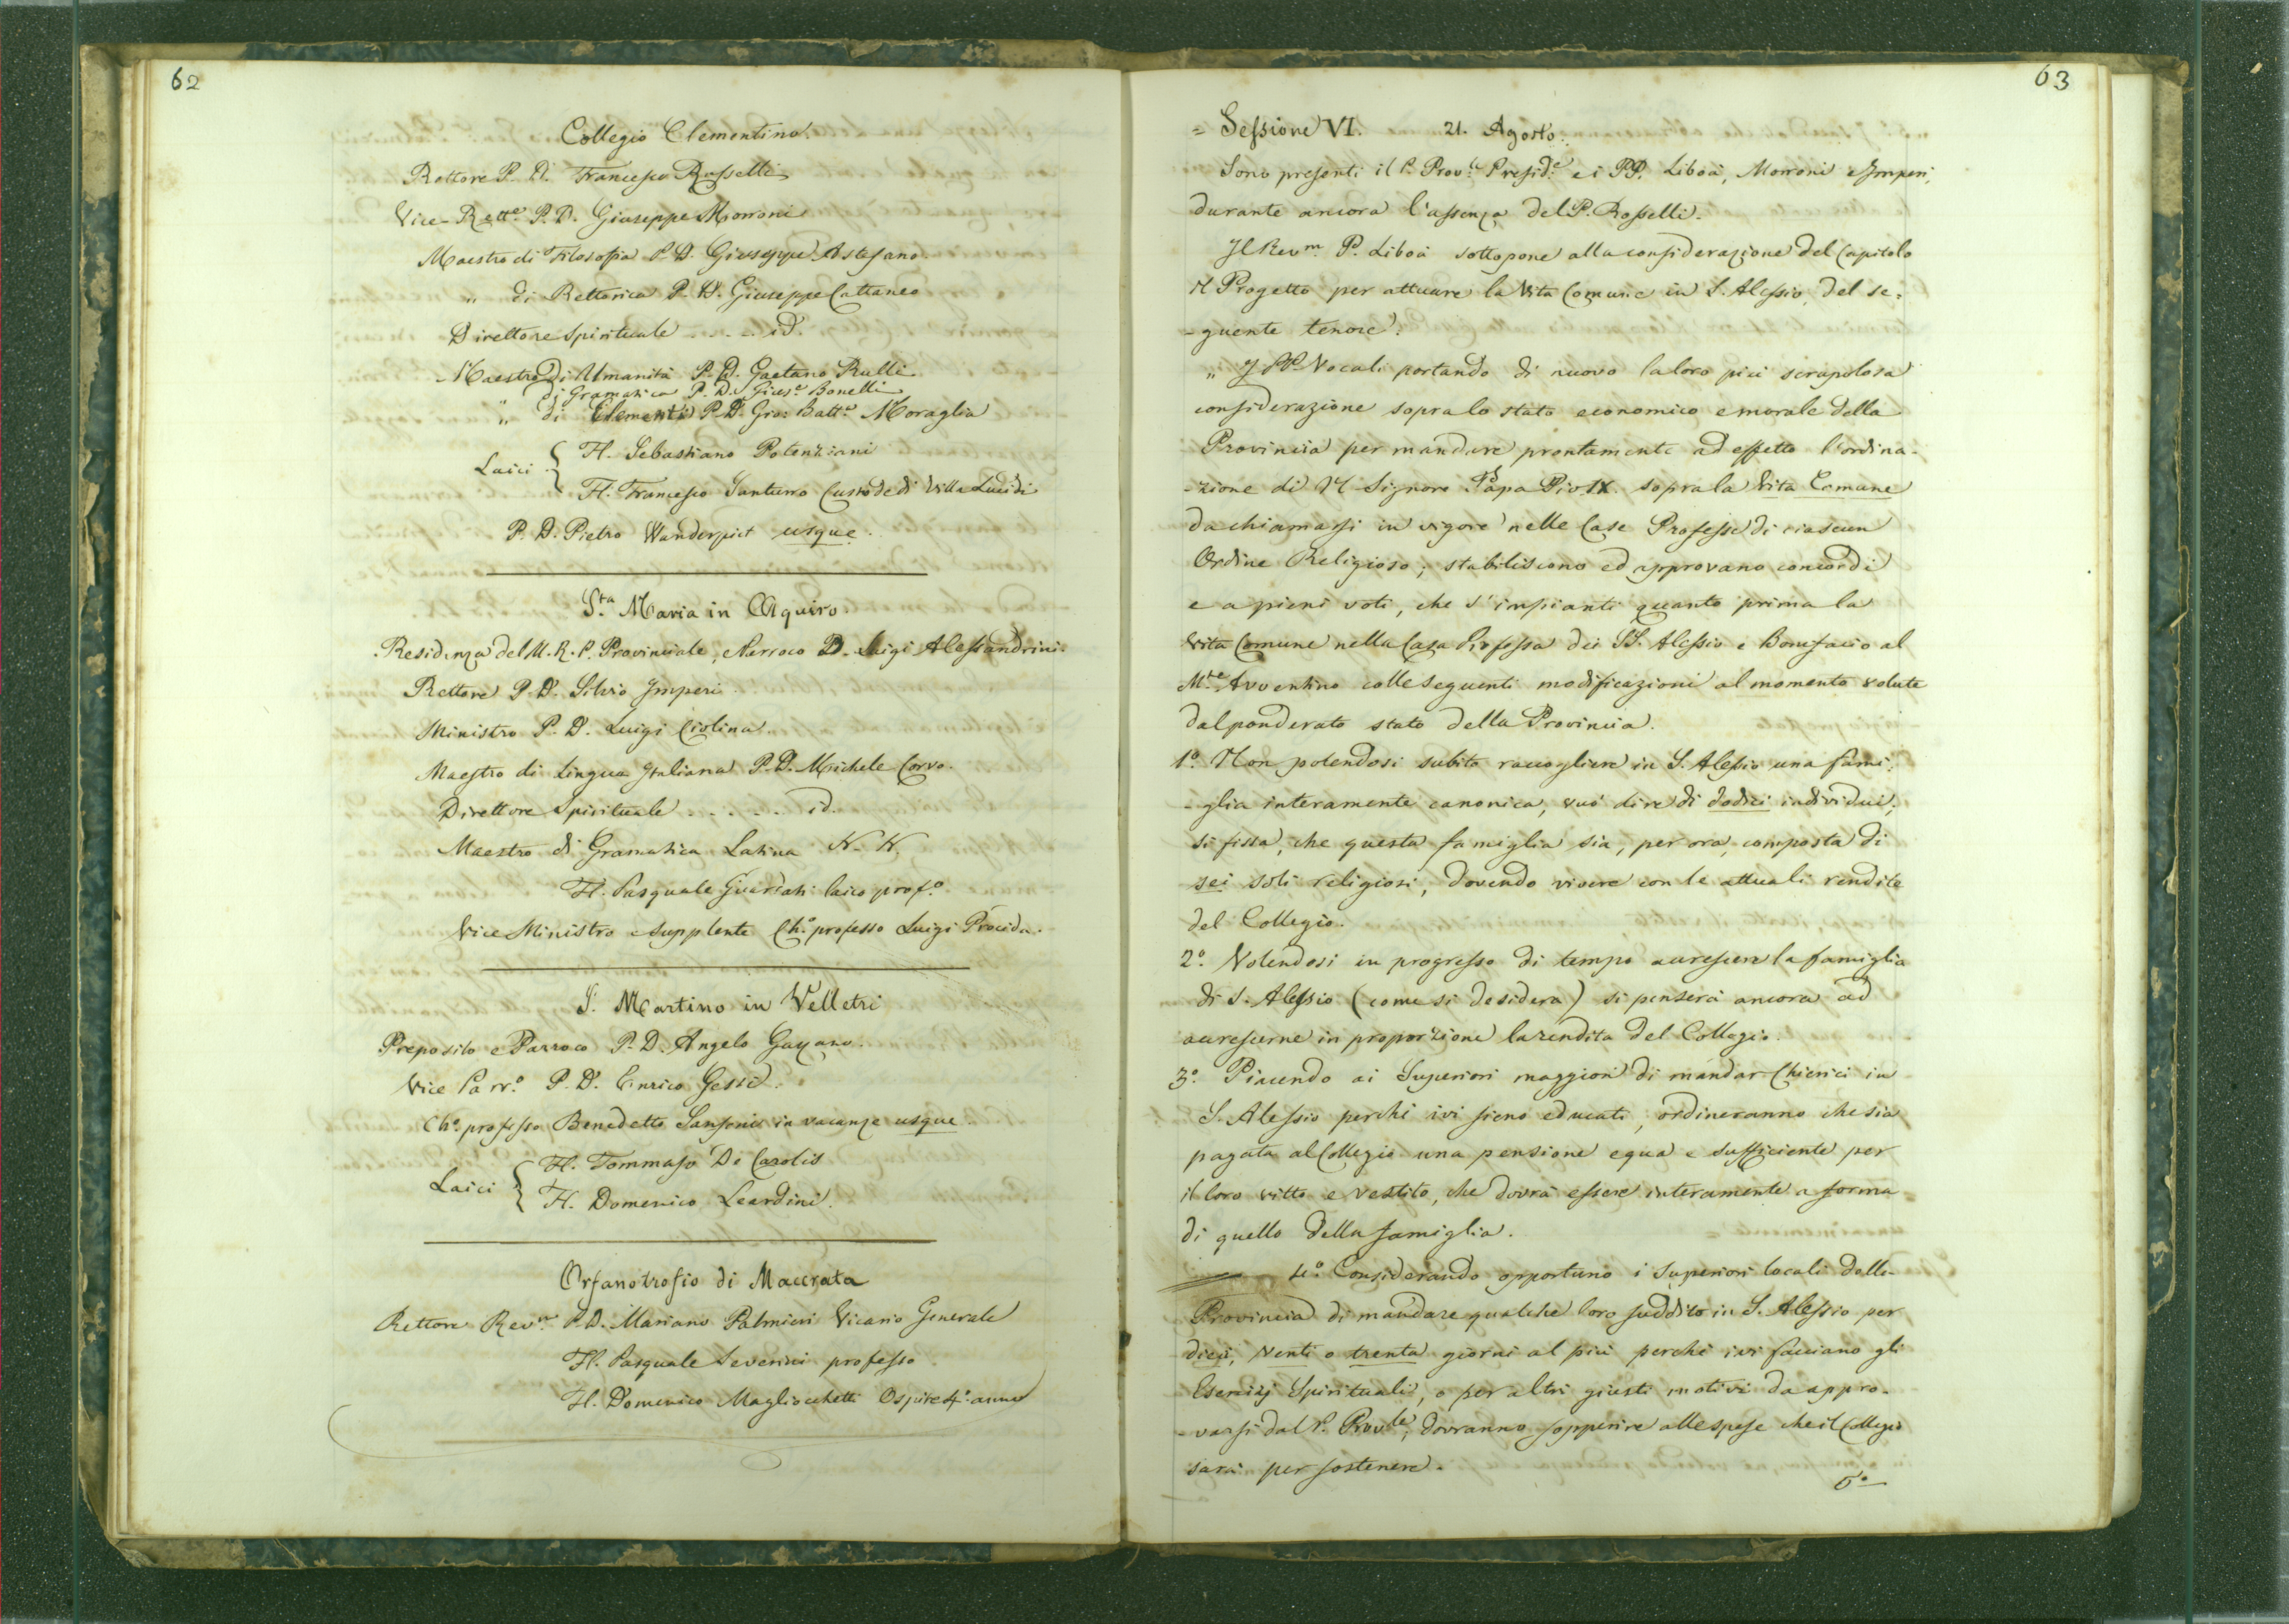 62
Collegio Clementino.
Rettore P. D. Francesco Rosselli
Vice-Rett.e P. D. Giuseppe Morroni
Maestro di Filosofia P. D. Giuseppe Astefano.
„ di Rettorica P. D. Giuseppe Cattaneo
Direttore Spirituale . . . . id.
Maestro di Umanità P. D. Gaetano Rulli
di Gramatica P. D. Gius.e Bonelli
„ di Elementi P. D. Gio: Batt.a Moraglia
Laici { H. Sebastiano Potenziani
H. Francesco Santurro Custode di Villa Lucidi
P. D. Pietro Wanderpict usque.
S.ta Maria in Aquiro.
Residenza del M. R. P. Provinciale, e Parroco D. Luigi Alessandrini.
Rettore P. D. Silvio Imperi.
Ministro P. D. Luigi Ciolina.
Maestro di Lingua Italiana P. D. Michele Corvo.
Direttore Spirituale . . . . . id.
Maestro di Gramatica Latina N. N.
H. Pasquale Guardati laico prof.o
Vice Ministro e supplente Ch.o professo Luigi Procida.
S. Martino in Velletri
Preposito e Parroco P. D. Angelo Gayano.
Vice Parr.o P. D. Enrico Gessi.
Ch.o professo Benedetto Sansonis in vacanze usque.
Laici { H. Tommaso De Carolis
H. Domenico Leardini.
Orfanotrofio di Macerata
Rettore Rev.m P. D. Mariano Palmieri Vicario Generale
H. Pasquale Severini professo
H. Domenico Magliocchetti Ospite 4.o anno
63
= Sessione VI. 21. Agosto.
Sono presenti il P. Prov.le Presid.e e i PP. Liboà, Morroni e Imperi,
durante ancora l'assenza del P. Rosselli.
Il Rev.m P. Liboà sottopone alla considerazione del Capitolo
il Progetto per attuare la Vita Comune in S. Alessio, del se=
-guente tenore:
„ I PP. Vocali portando di nuovo la loro più scrupolosa
considerazione sopra lo stato economico e morale della
Provincia per mandare prontamente ad effetto l'ordina-
-zione di N. Signore Papa Pio IX. sopra la Vita Comune
da chiamarsi in vigore nelle Case Professe di ciascun
Ordine Religioso; stabiliscono ed approvano concordi
e a pieni voti, che s'impianti quanto prima la
Vita Comune nella Casa Professa dei SS. Alessio e Bonifacio al
M.te Avventino colle seguenti modificazioni al momento volute
dal ponderato stato della Provincia.
1.o Non potendosi subito raccogliere in S. Alessio una fami-
-glia interamente canonica, vuo' dire di dodici individui,
si fissa, che questa famiglia sia, per ora, composta di
sei soli religiosi, dovendo vivere con le attuali rendite
del Collegio.
2.o Volendosi in progresso di tempo accrescere la famiglia
di S. Alessio (come si desidera) si penserà ancora ad
accrescerne in proporzione la rendita del Collegio.
3.o Piacendo ai Superiori maggiori di mandar Chierici in
S. Alessio perchè ivi sieno educati, ordineranno che sia
pagata al Collegio una pensione equa e sufficiente per
il loro vitto e vestito, che dovrà essere interamente a forma
di quello della famiglia.
4.o Considerando opportuno i Superiori locali della
Provincia di mandare qualche loro suddito in S. Alessio per
dieci, venti o trenta giorni al più perchè ivi facciano gli
Esercizj Spirituali, o per altri giusti motivi da appro-
-varsi dal P. Prov.le, dovranno sopperire alle spese che il Collegio
sarà per sostenere.
5.o